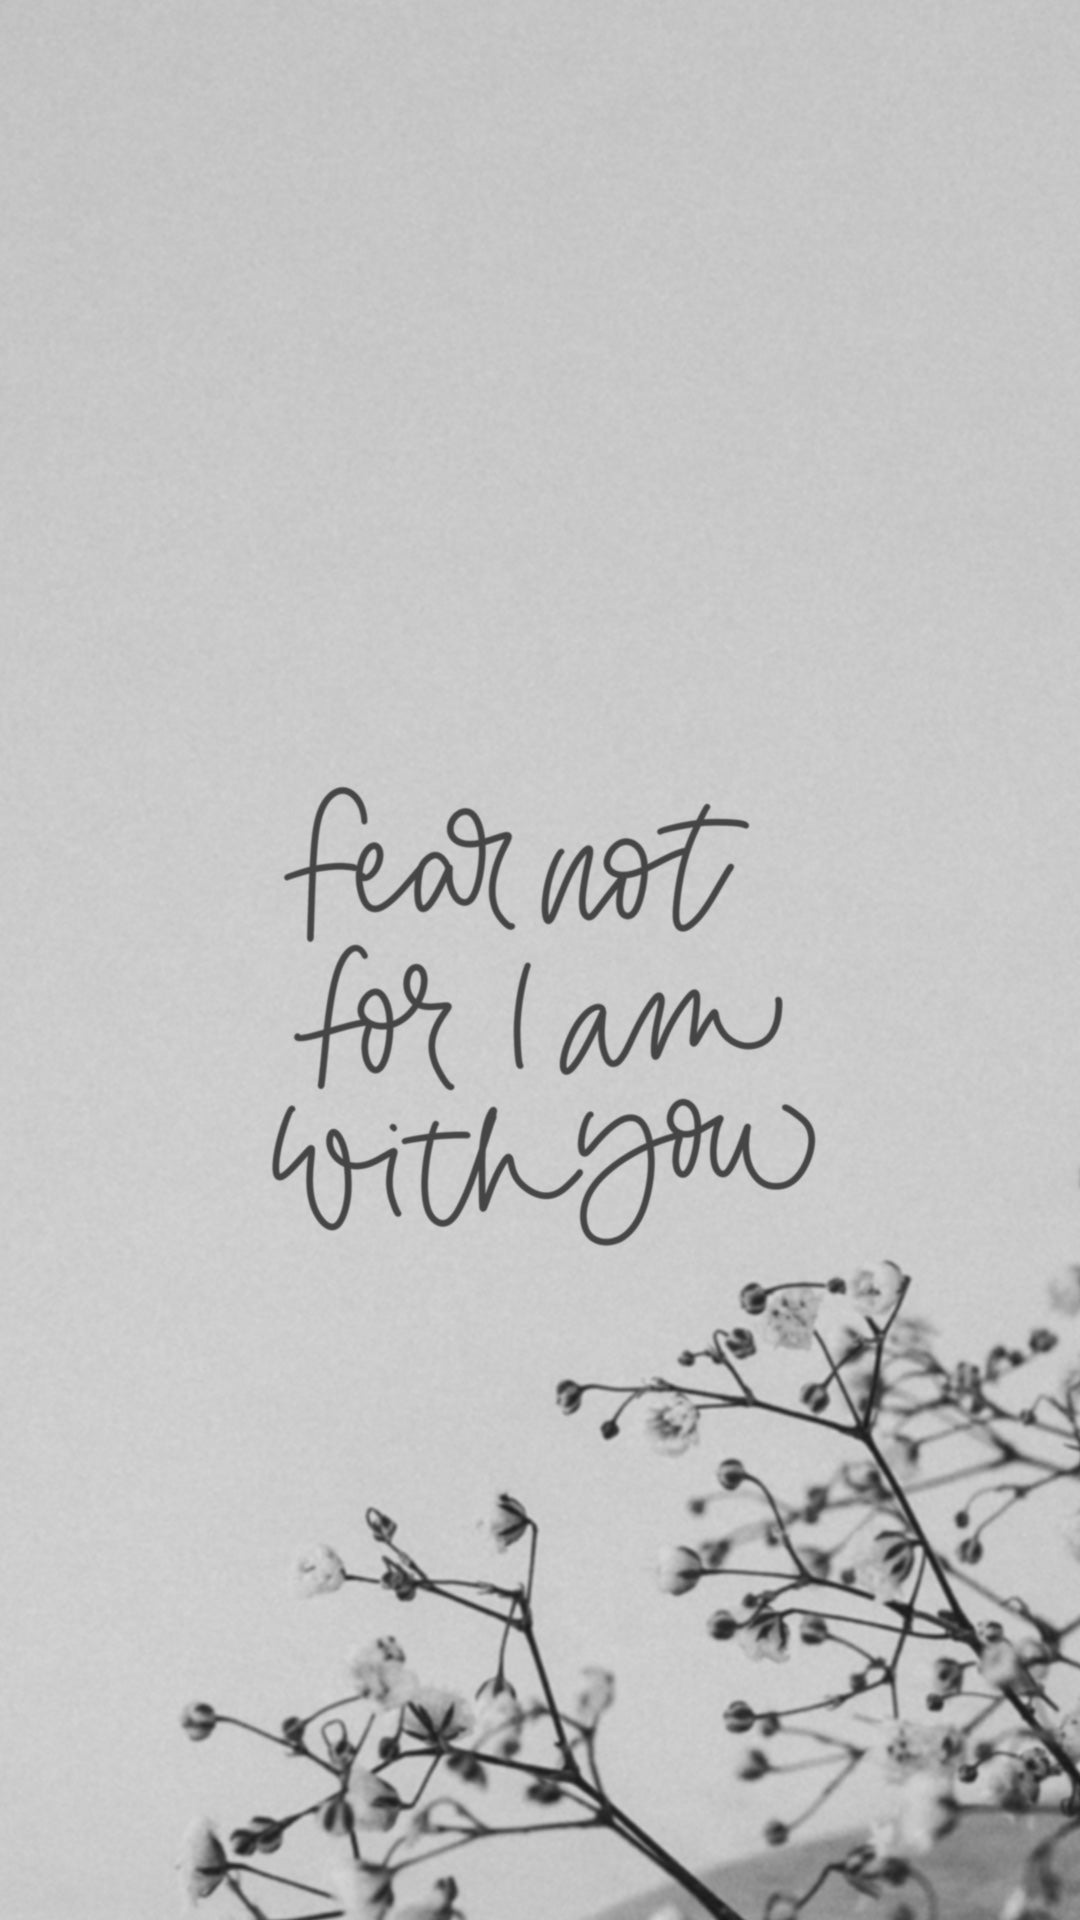 fear not
for I am
with you